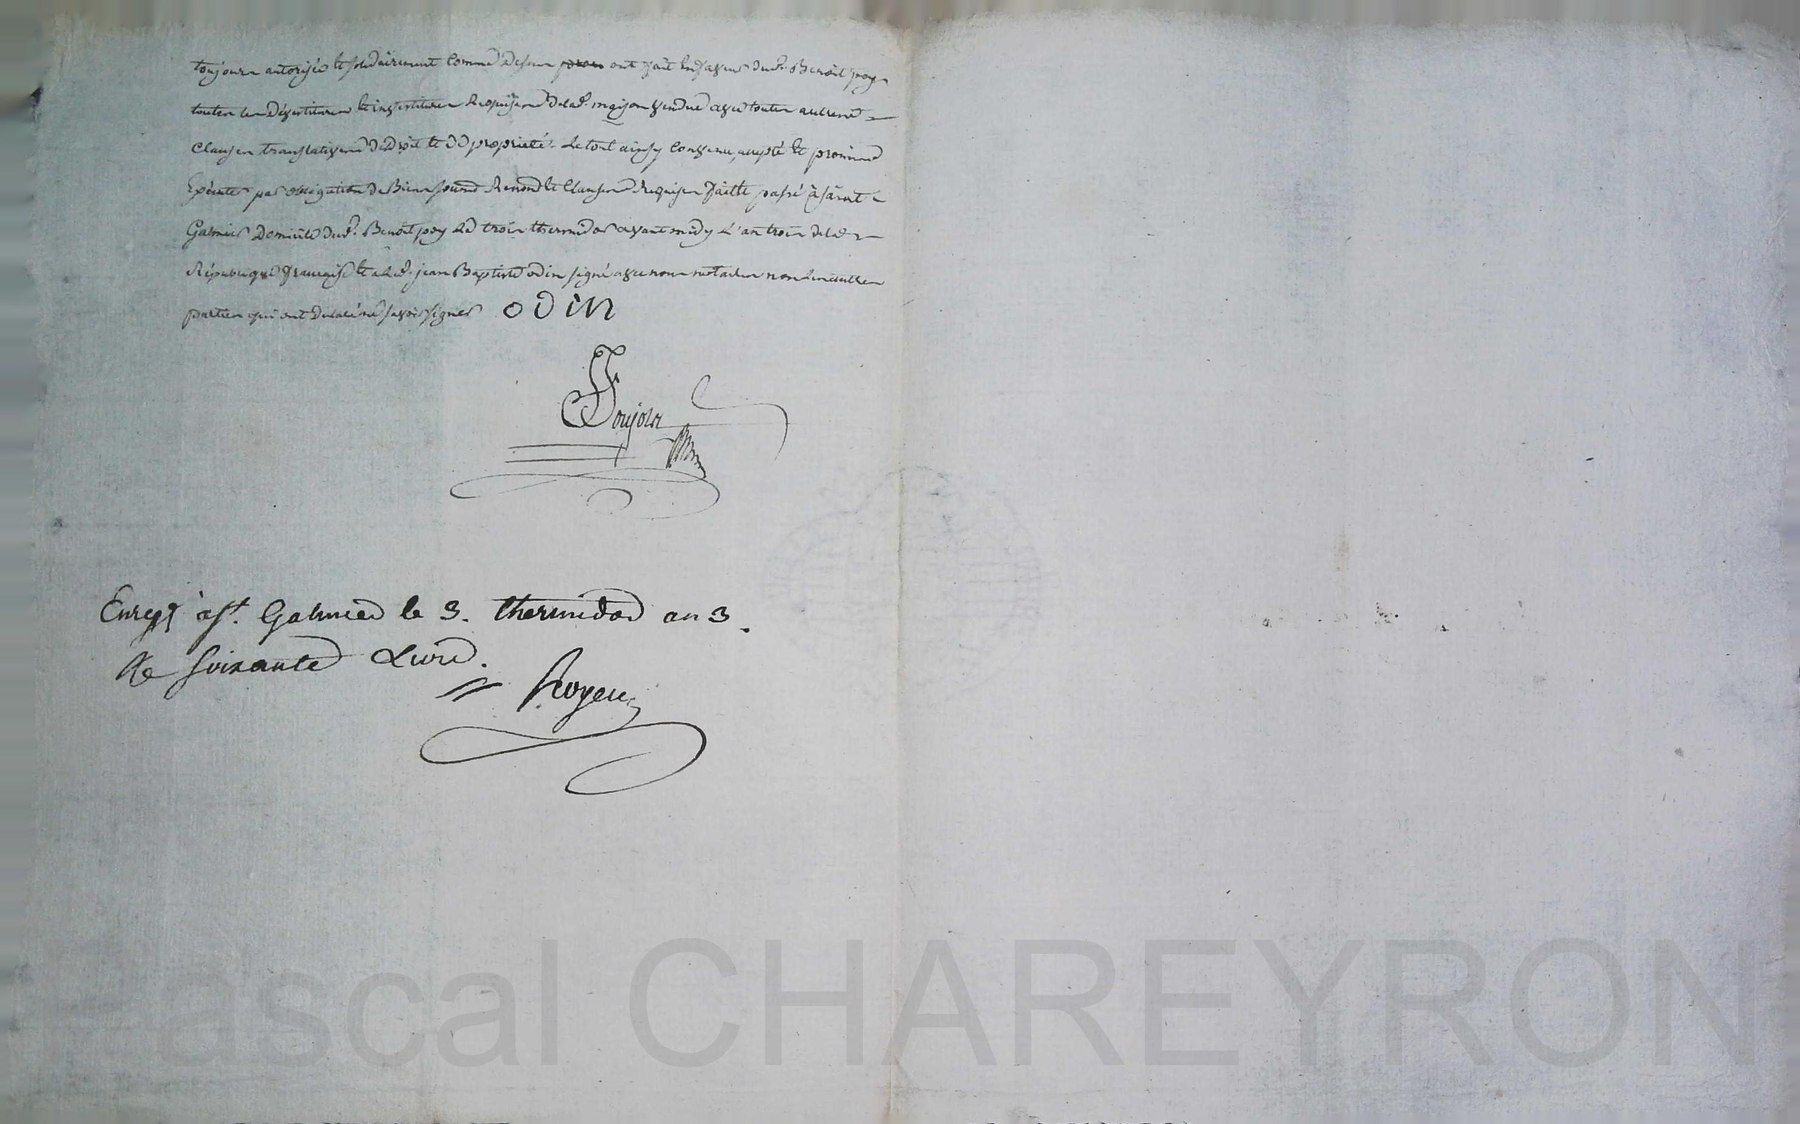 toujours autorisée et solidairement comme dessus ont fait en faveur dud. Benoit poy
toutes les dévestitures et investitures Requises de lad. maison vendue avec toutes autres
clauses translatives de droit et de propriété. Le tout ainsy convenu, accepté et promis
Exécuter par obligation de Biens soumis Renond et clauses Requises faitte passé à saint
Galmier domicile dud. Benoit poy le trois thermidor avant midy l'an trois de la
République française et a led. jean Baptiste odin signé avec nous notaire non les autres
parties qui ont déclaré ne savoir signer odin
Boujola
Enreg à St. Galmier le 3. thermidor an 3.
Re soixante Livres.
Royer
Pascal CHAREYRON